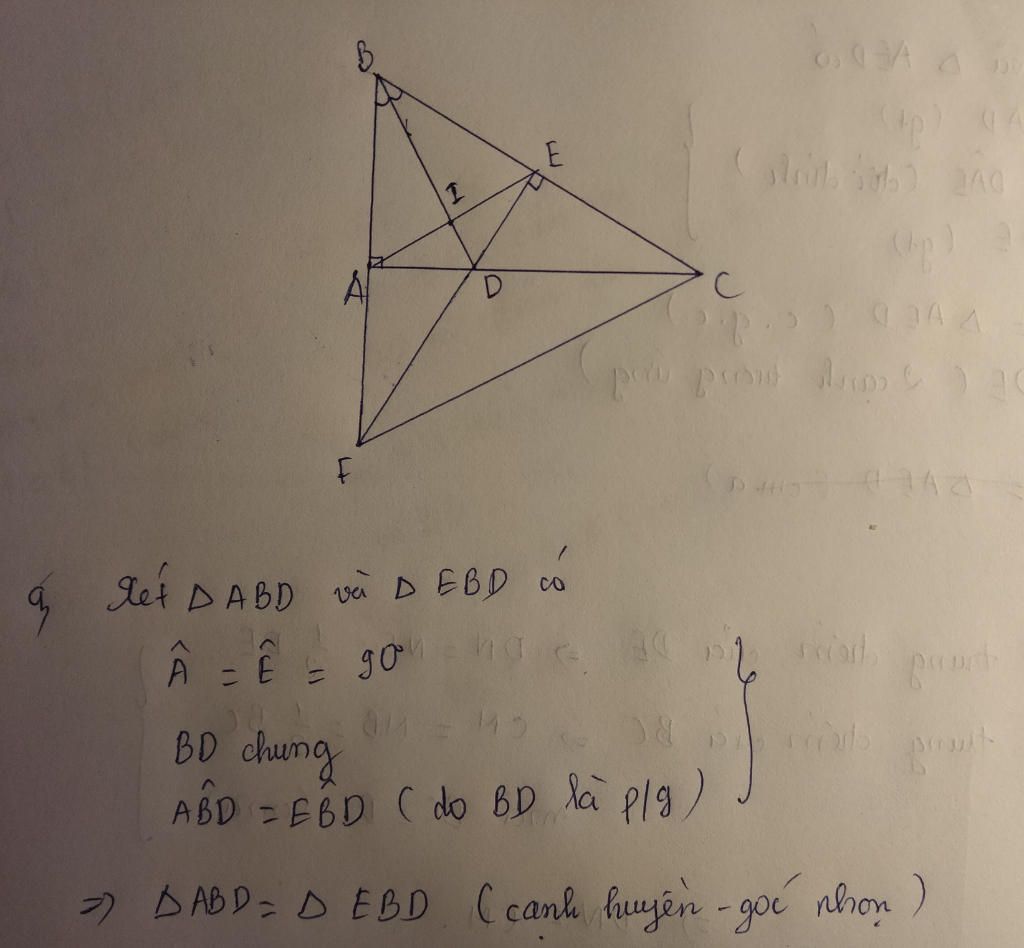 B
E
I
A
D
C
F
a, Xét Δ ABD và Δ EBD có
Â = Ê = 90°
BD chung
AB̂D = EB̂D ( do BD là p/g )
=> Δ ABD = Δ EBD ( cạnh huyền - góc nhọn )